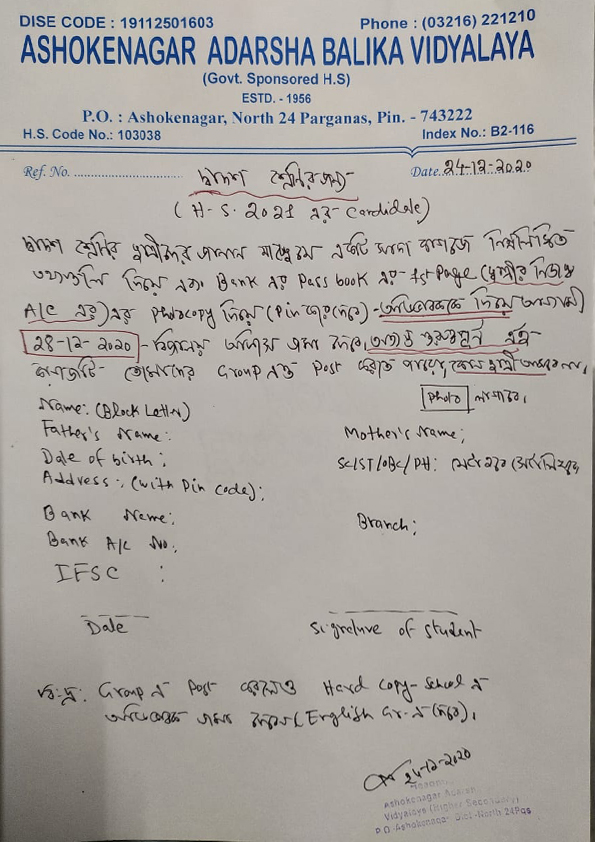 DISE CODE : 19112501603
Phone : (03216) 221210
ASHOKENAGAR ADARSHA BALIKA VIDYALAYA
(Govt. Sponsored H.S)
ESTD. - 1956
P.O. : Ashokenagar, North 24 Parganas, Pin. - 743222
H.S. Code No.: 103038
Index No.: B2-116
Ref. No.
Date. 24-12-2020
দ্বাদশ শ্রেণির জন্য
(H.S. 2021 এর Candidate)
দ্বাদশ শ্রেণির ছাত্রীদের জানান যাচ্ছে যে একটি সাদা কাগজে নিম্নলিখিত
তথ্যগুলি দিয়ে এবং Bank এর Pass book এর 1st Page (ছাত্রীর নিজস্ব
A/C এর) এর Photocopy দিয়ে (Pin করে) - অভিভাবককে দিয়ে আগামী
28-12-2020 - বিদ্যালয় অফিসে জমা দেবে, অত্যন্ত গুরুত্বপূর্ণ এই
কাগজটি তোমাদের Group এ Post করতে পারো, কোন ছাত্রী আসবে না,
Photo লাগাবে,
Name: (Block Letter)
Father's Name:
Mother's Name;
Date of birth;
SC/ST/OBC/PH:
Address:, (with Pin code);
Bank Name;
Branch;
Bank A/C No.
IFSC :
Date
Signature of student
বি:দ্র: Group এ Post করলেও Hard copy - School এ
অভিভাবক জমা দেবেন (English Gr. এ দেবে),
24-12-2020
Ashokenagar Adarsh
Vidyalaya (Higher Secondary)
P.O.-Ashokenagar Dist-North 24Pgs